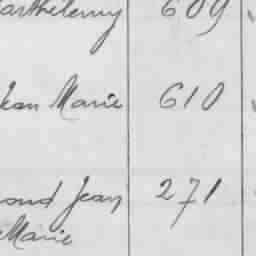 arthelemy 609
Jean Marie 610
ond Jean 271
Marie